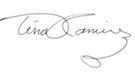 Tina Ramirez